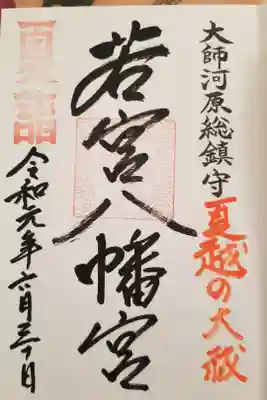 大師河原総鎮守
夏越の大祓
若宮八幡宮
夏詣
令和元年六月三十日